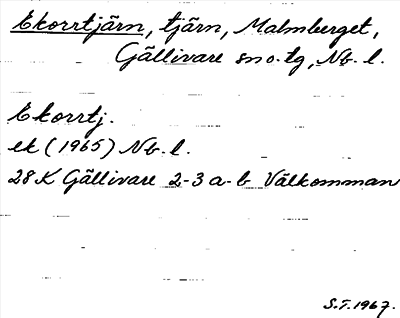 Ekorrtjärn, tjärn, Malmberget,
Gällivare sn o. tg, Nb. l.
Ekorrtj.
ek (1965) Nb. l.
28 K Gällivare 2-3 a-b Välkomman
S.T. 1967.